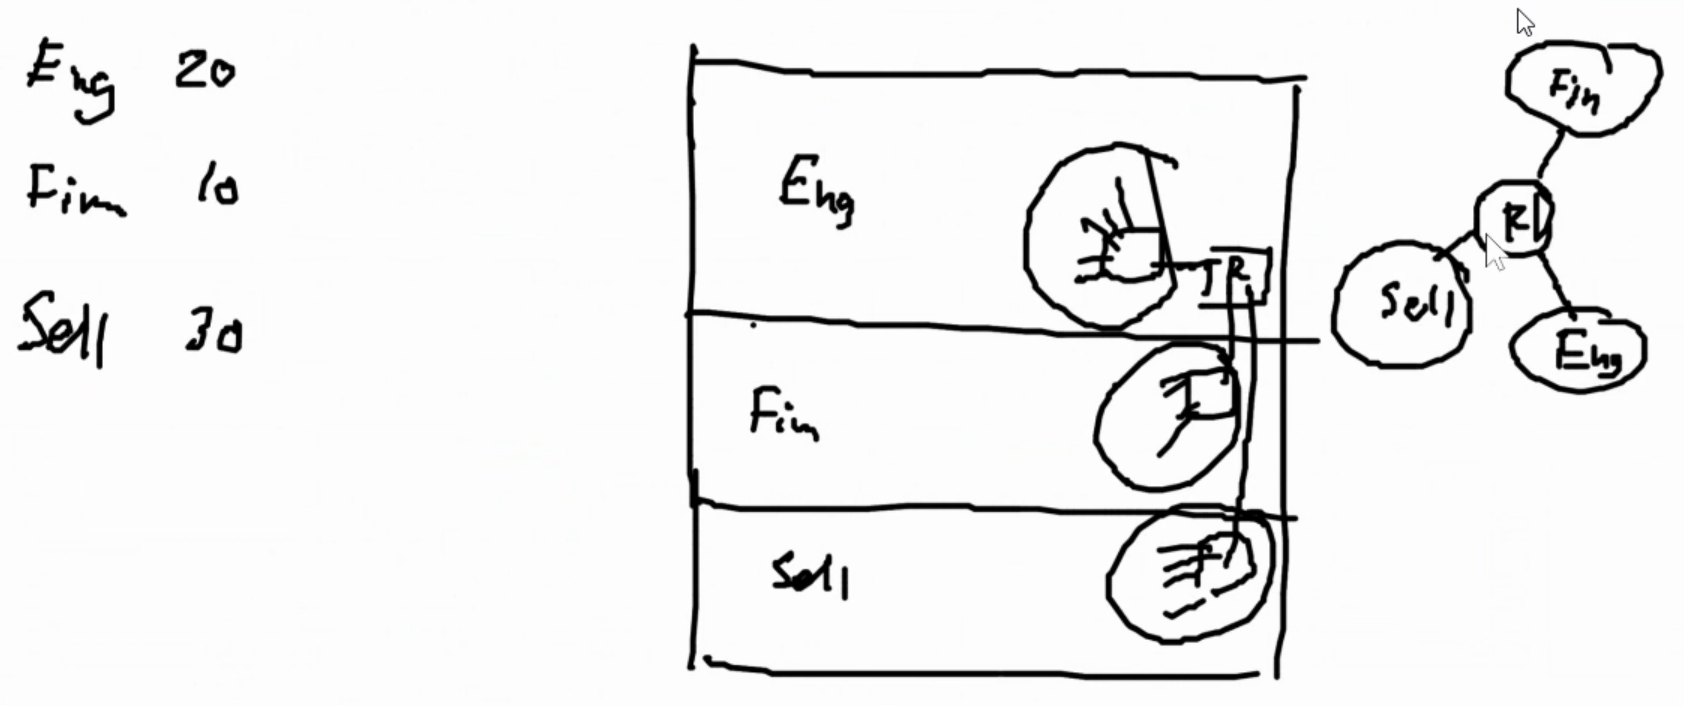 Eng 20
Fin 10
Sell 30
Eng
R
Fin
Sell
Fin
R
Sell
Eng